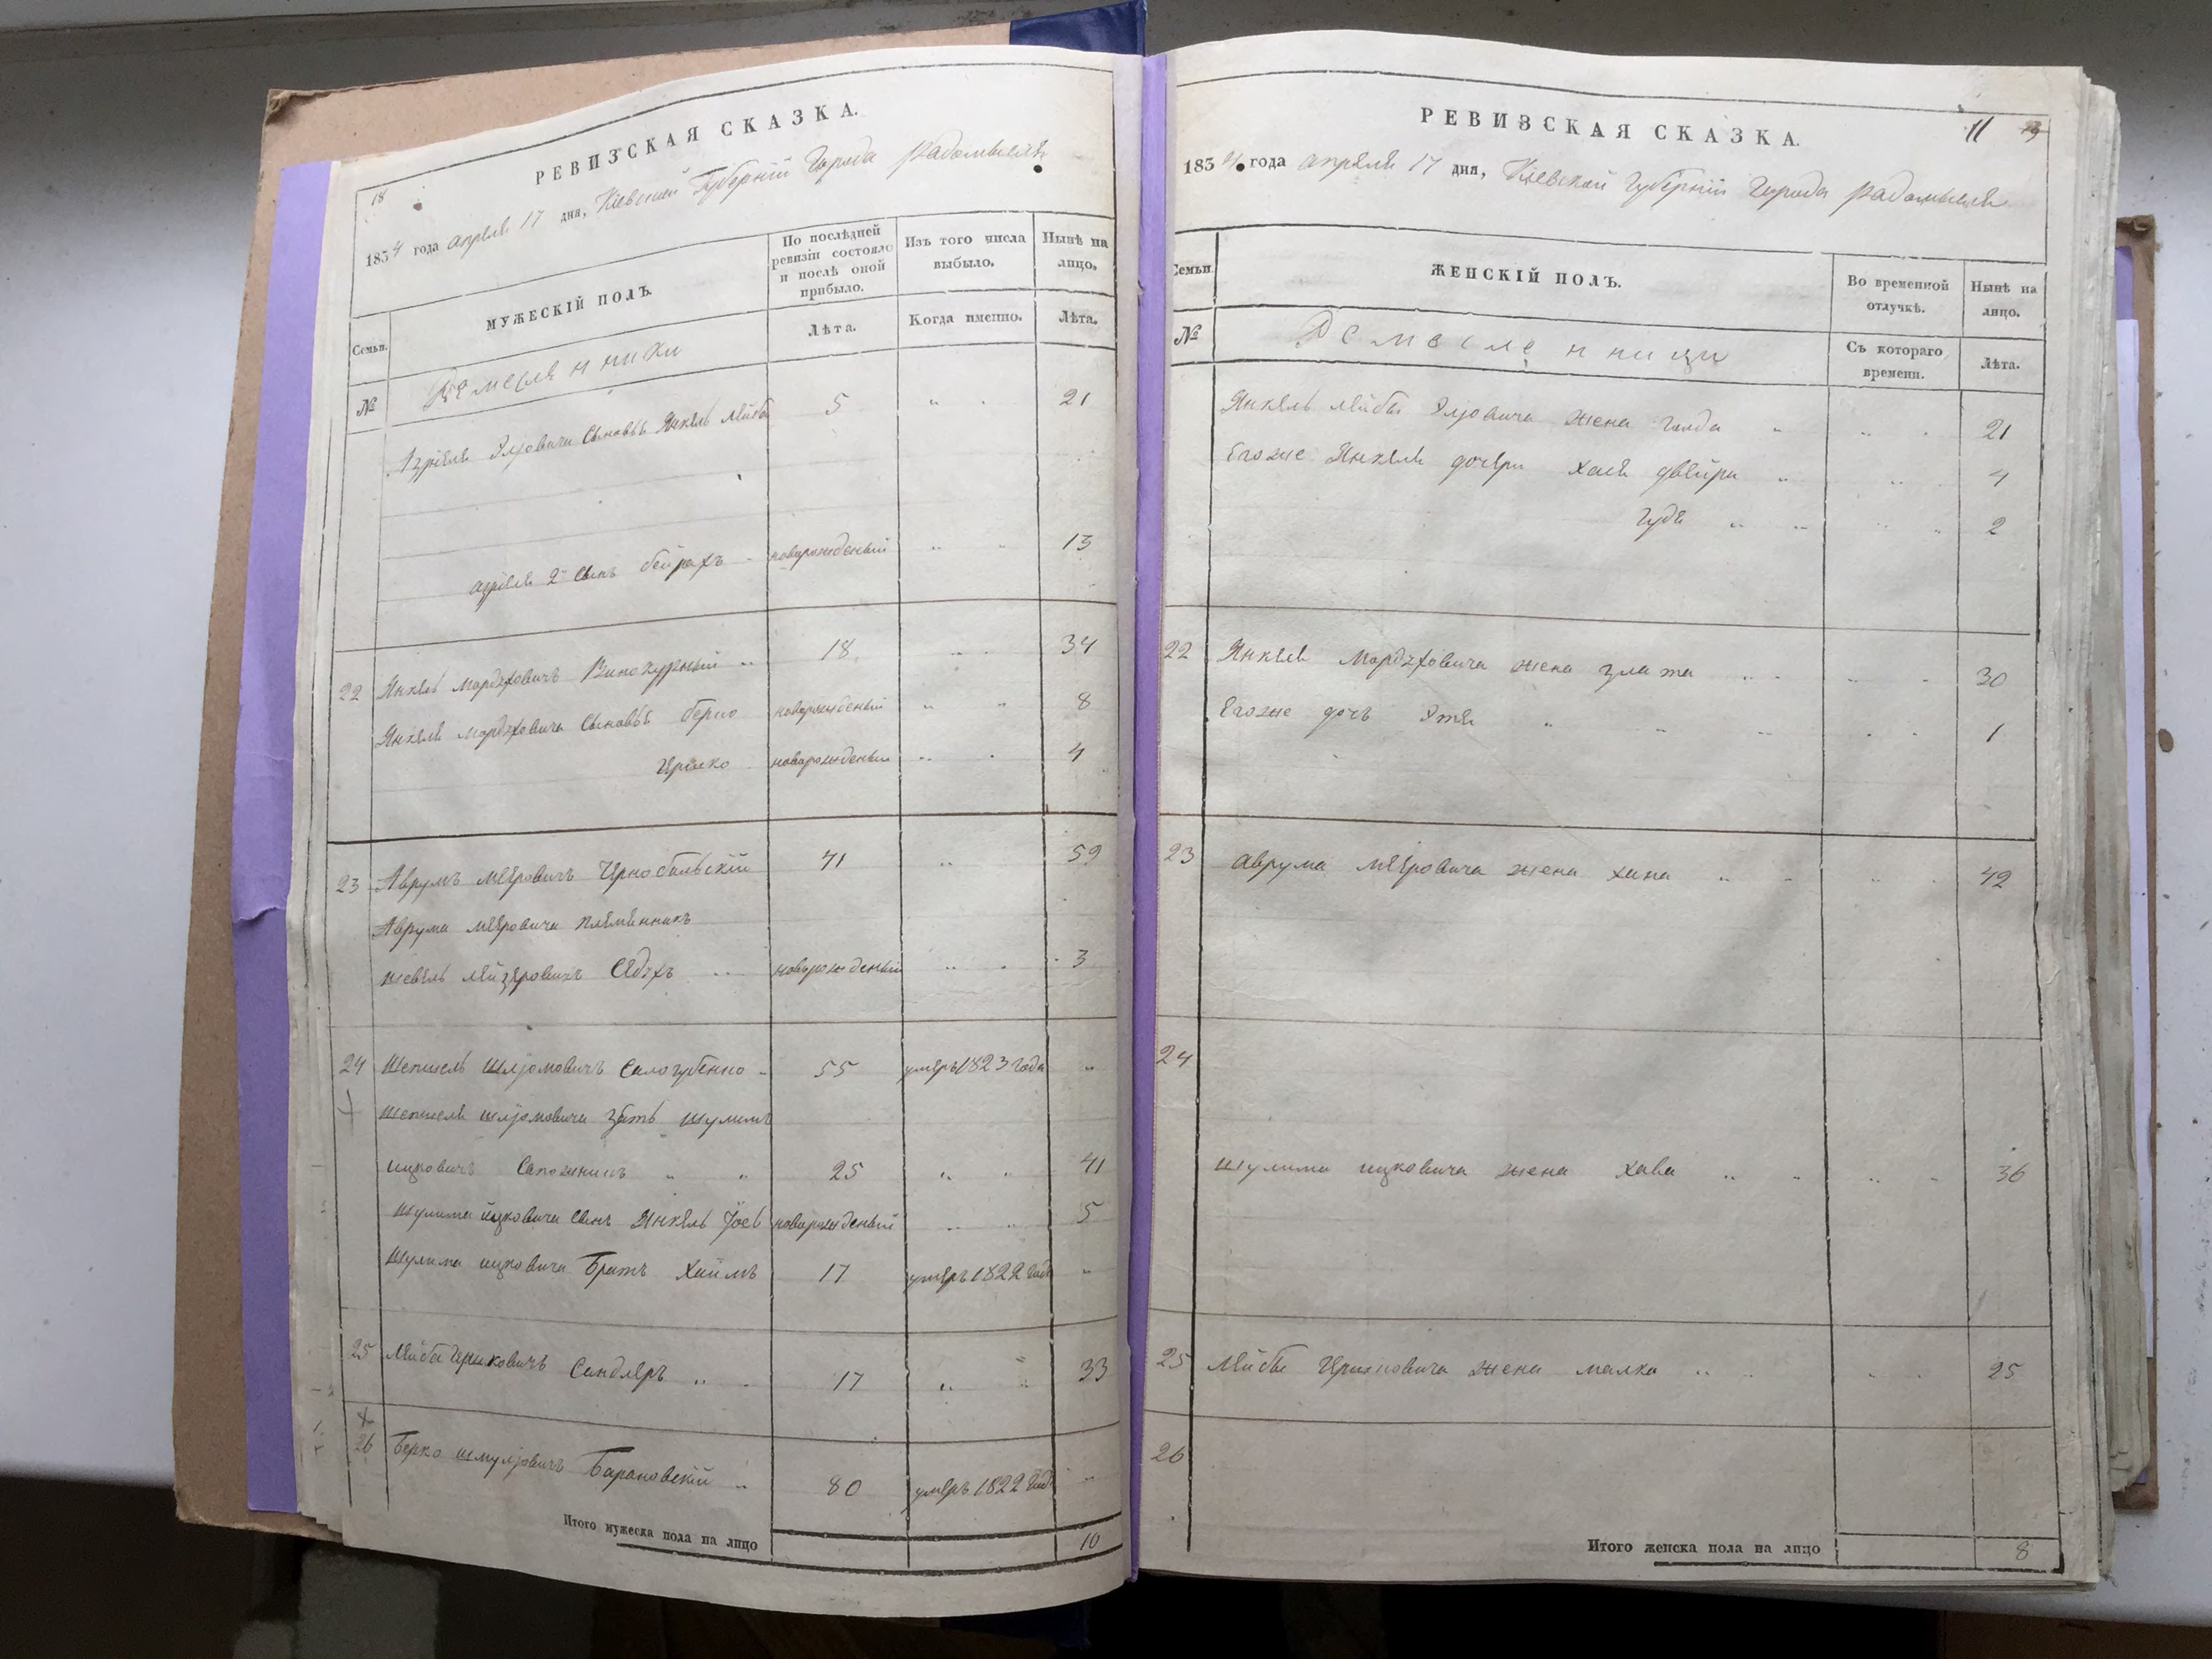 18
РЕВИЗСКАЯ СКАЗКА.
1834 года апреля 17 дня, Кіевской Губерніи Города Радомысля
Семьи.
МУЖЕСКІЙ ПОЛЪ.
По послѣдней ревизіи состояло и послѣ оной прибыло.
Изъ того числа выбыло.
Нынѣ на лицо.
№
Ремесленники
Лѣта.
Когда именно.
Лѣта.
Азріеля Эліовича сыновья Янкель Лейба 5 " " 21
Азріеля 2й сынъ Бейрахъ новорожденый " " 13
22 Янкель Мордуховичъ Винокурный " 18 " " 34
Янкеля Мордуховича сыновья Берко новорожденый " " 8
Гершко новорожденый " " 4
23 Аврумъ Меeровичъ Чернобыльскій 41 " 59
Аврума Меeровича племянникъ
Шевель Лейзеровичъ новорожденый " " 3
24 Шепсель Шліомовичъ 55 умеръ 1823 года "
Шепселя Шліомовича зять Шулимъ
Ицковичъ Сапожникъ " " 25 " " 41
Шулима Ицковича сынъ Янкель Іось новорожденый " " 5
Шулима Ицковича братъ Хаимъ 17 умеръ 1822 года "
25 Лейба Гершковичъ Сандлеръ " 17 " " 33
26 Берко Шмуліовичъ Барановскій " 80 умеръ 1822 года "
Итого мужеска пола на лицо 10
РЕВИЗСКАЯ СКАЗКА.
11
1834 года апреля 17 дня, Кіевской Губерніи Города Радомысля
Семьи.
ЖЕНСКІЙ ПОЛЪ.
Во временной отлучкѣ.
Нынѣ на лицо.
№
Ремесленници
Съ котораго времени.
Лѣта.
Янкель Лейбы Эліовича жена Голда " " " 21
Егоже Янкеля дочери Хася Двейра " " " 4
Гудя " " " " 2
22 Янкеля Мордуховича жена Злата " " " " 30
Егоже дочь Этя " " " " " 1
23 Аврума Меeровича жена Хана " " " " 42
24
Шулима Ицковича жена Хава " " " " 36
25 Лейбы Гершковича жена Малка " " " " 25
26
Итого женска пола на лицо 8